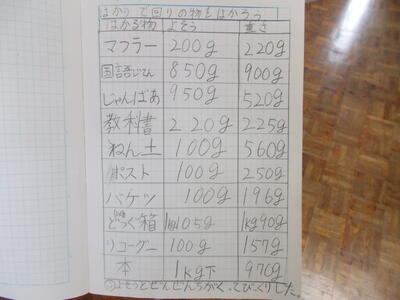 はかりで回りの物をはかろう
はかる物 よそう 重さ
マフラー 200g 220g
国語じてん 850g 900g
じゃんばあ 950g 520g
教科書 220g 225g
ねん土 100g 560g
ポスト 100g 250g
バケツ 100g 196g
どうぐ箱 1kg105g 1kg90g
リコーダー 100g 157g
本 1kg下 970g
よそうとぜんぜんちがくてびっくりした。